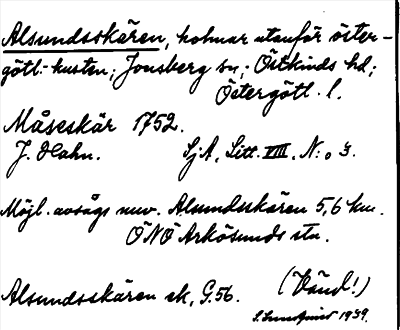 Alsundsskären, holmar utanför öster-
götl.-kusten; Jonsberg sn; Östkinds hd;
Östergötl. l.
Måseskär 1752.
J. Hahn. SjA, Litt. VIII, N:o 3.
Möjl. avsågs nuv. Alsundsskären 5,6 km.
ÖNÖ Arkösunds stn.
Alsundsskären sk, G.56. (Vänd!)
S. Sundqvist 1939.